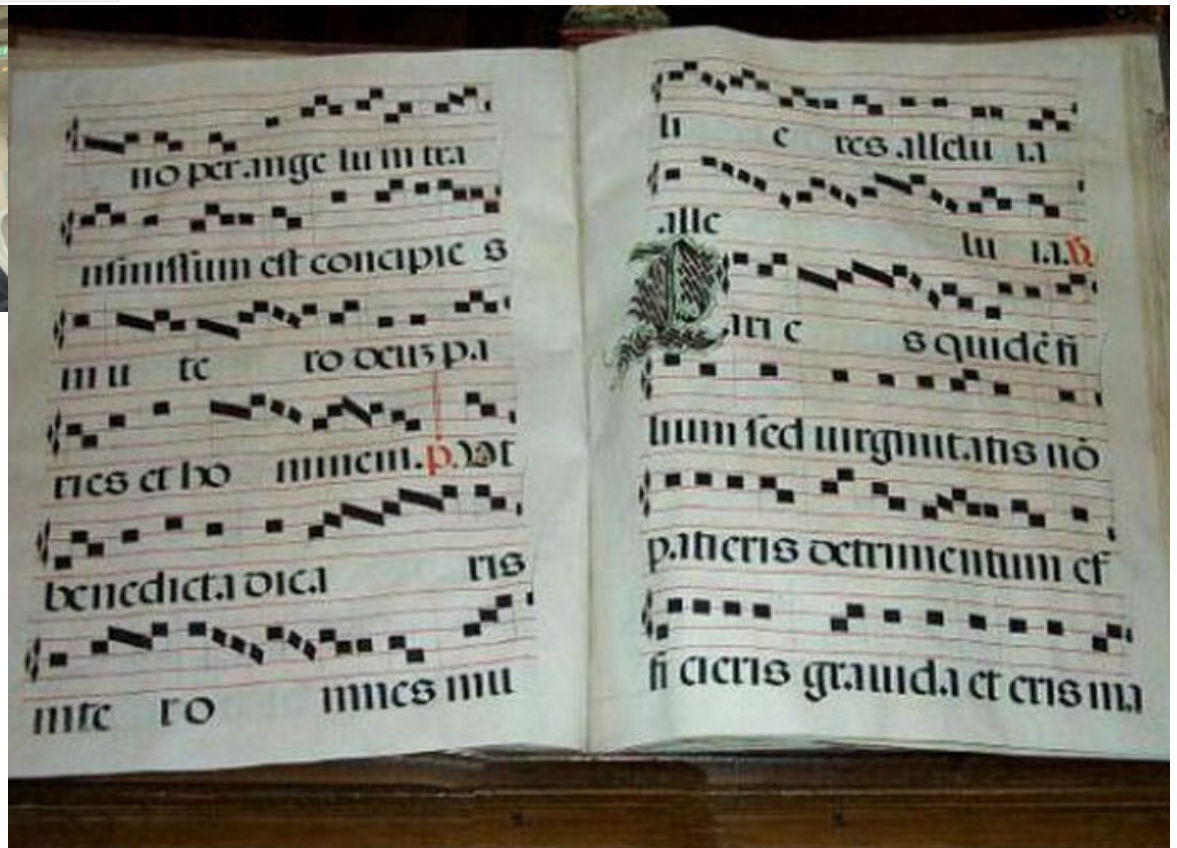 no per ange lu m tra
nsmissum est concipie s
in u te ro deus pa
ries et ho minem. p. Ut
benedicta dica ris
inte ro mnes mu
li e res allelu ia
alle lu ia. v.
Pari e s quidē fi
lium sed uirginitatis nō
patieris detrimentum ef
fi cieris grauida et eris ma